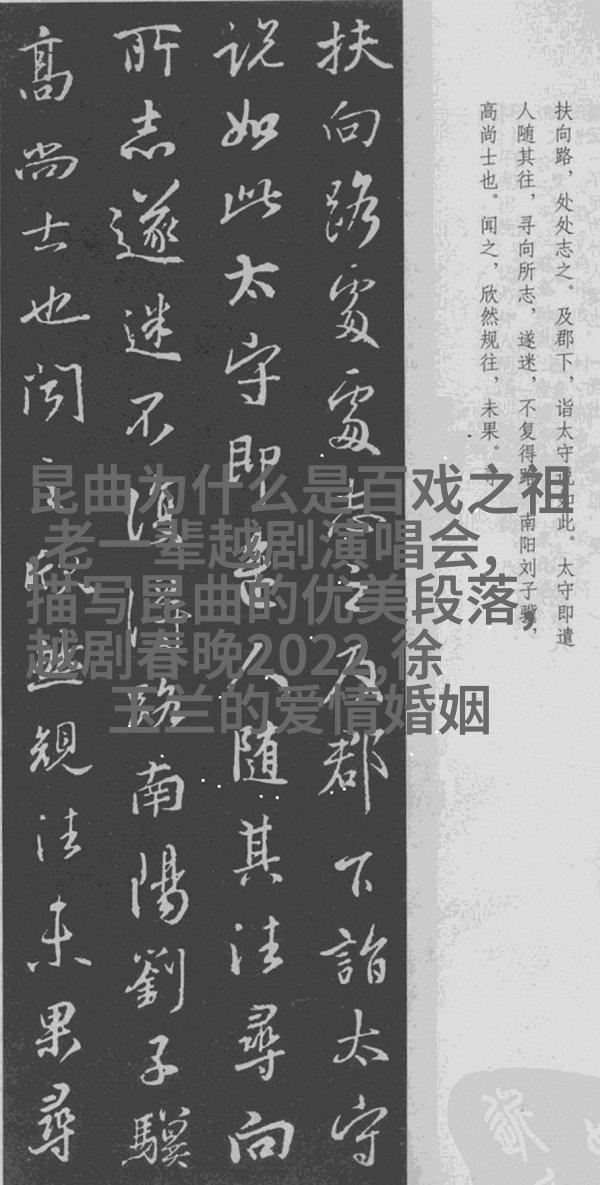 扶向路,处处志之。及郡下,诣太守说如此。太守即遣
人随其往,寻向所志,遂迷,不复得路。南阳刘子骥,
高尚士也。闻之,欣然规往,未果。
扶向路處處志之及郡下詣太守
説如此太守即遣人随其往尋向
所志遂迷不復得路南陽劉子驥
高尚士也闻之欣然規往未果尋
昆曲为什么是百戏之祖
,老一辈越剧演唱会,
描写昆曲的优美段落,
越剧春晚2022,徐
玉兰的爱情婚姻